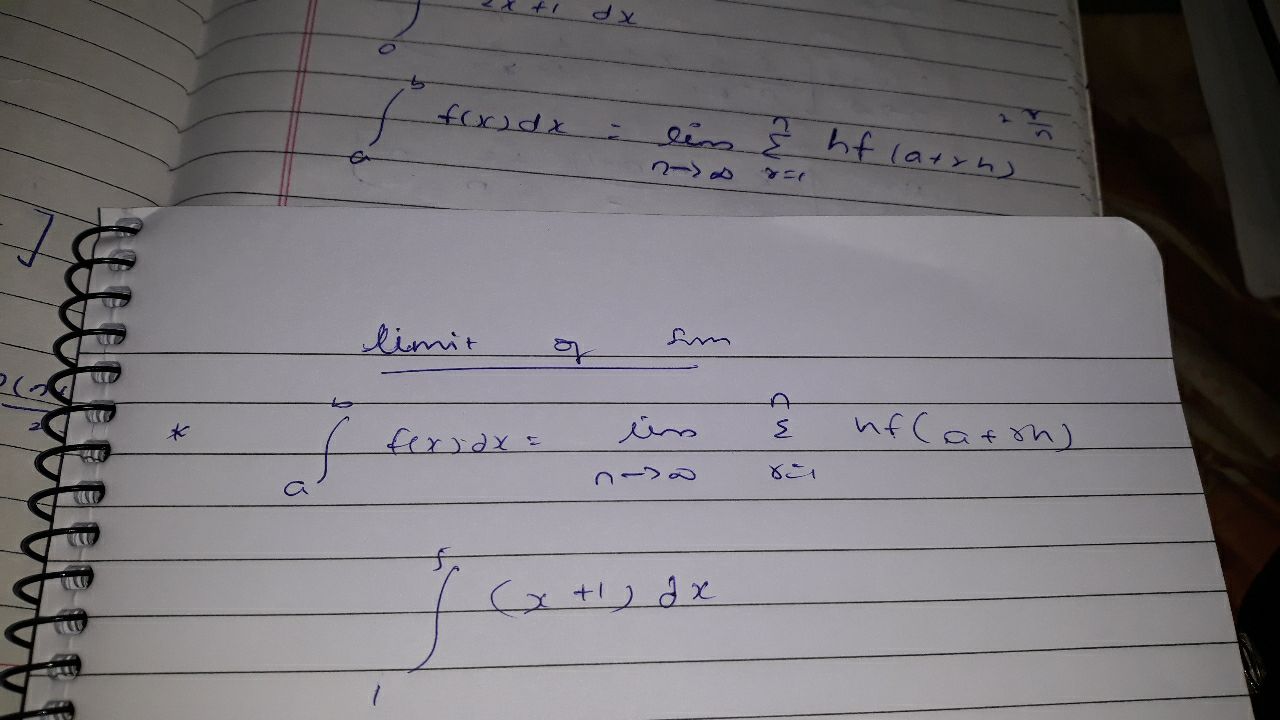 ∫₀ 2x+1 dx
∫ₐᵇ f(x)dx = lim n→∞ Σ r=1 n hf(a+rh)
= r/n
limit of sum
* ∫ₐᵇ f(x)dx = lim n→∞ Σ r=1 n hf(a+rh)
∫₁⁵ (x+1) dx